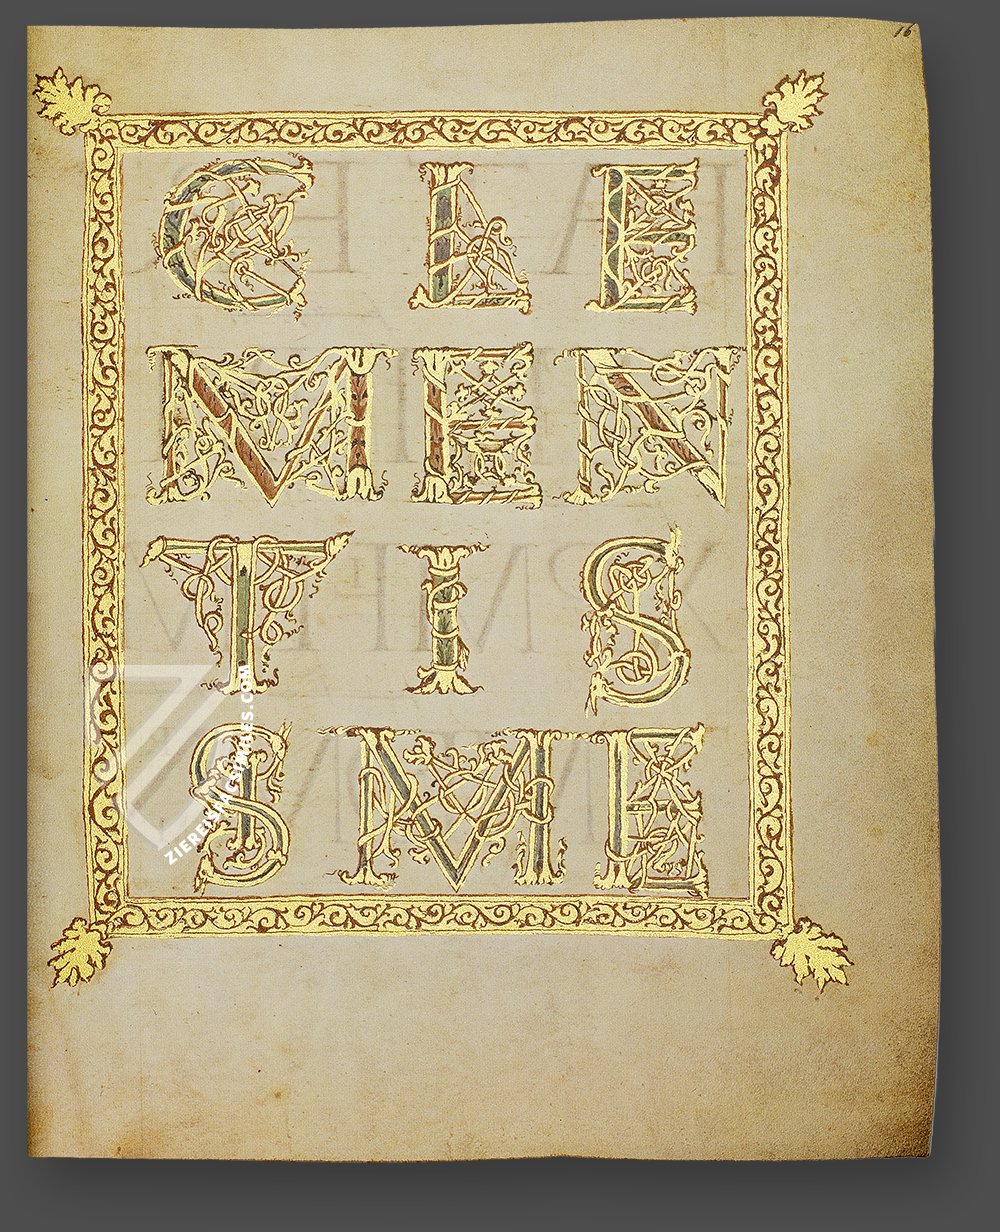 16
CLE
MEN
TIS
SME
ZIEREIS FACSIMILES.COM